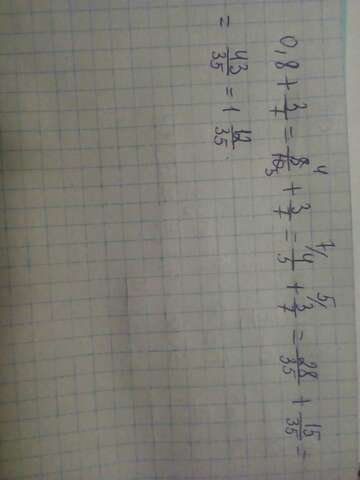 0,8 + 3/7 = 8/10 4 5 + 3/7 = 4/5 7/ + 3/7 5/ = 28/35 + 15/35 =
= 43/35 = 1 12/35